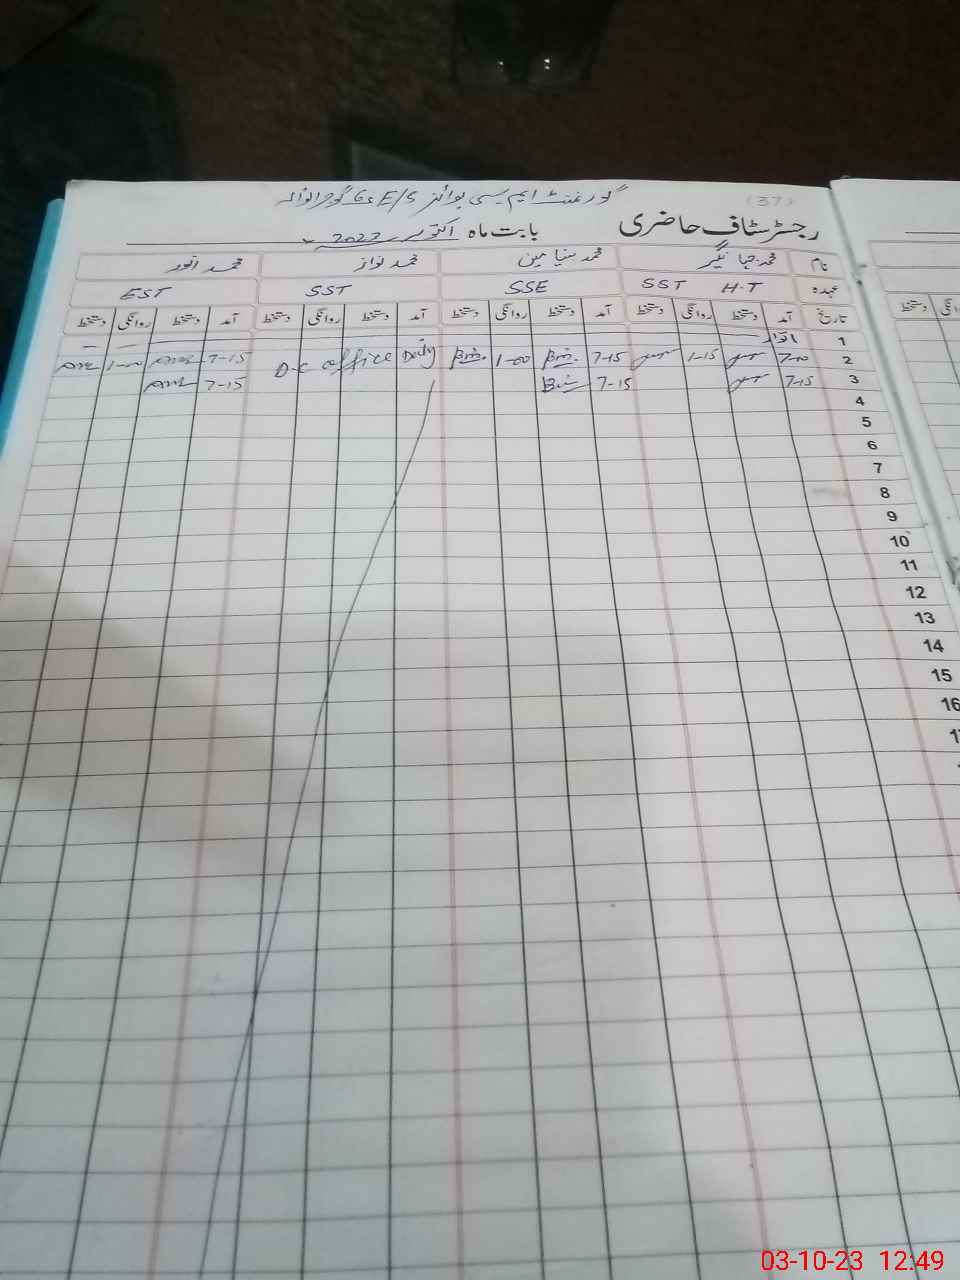 (37)
گورنمنٹ ایم سی بوائز E/S گوجرانوالہ
رجسٹر سٹاف حاضری بابت ماہ اکتوبر
نام محمد جہانگیر محمد بنیامین محمد نواز محمد انور
عہدہ SST H.T SSE SST EST
تاریخ آمد دستخط روانگی دستخط آمد دستخط روانگی دستخط آمد دستخط روانگی دستخط آمد دستخط روانگی دستخط
1 اتوار
2 7-10 1-15 7-15 1-00 D-C office Duty 7-15 1-00
3 7-15 7-15 7-15
4
5
6
7
8
9
10
11
12
13
14
15
16
03-10-23 12:49